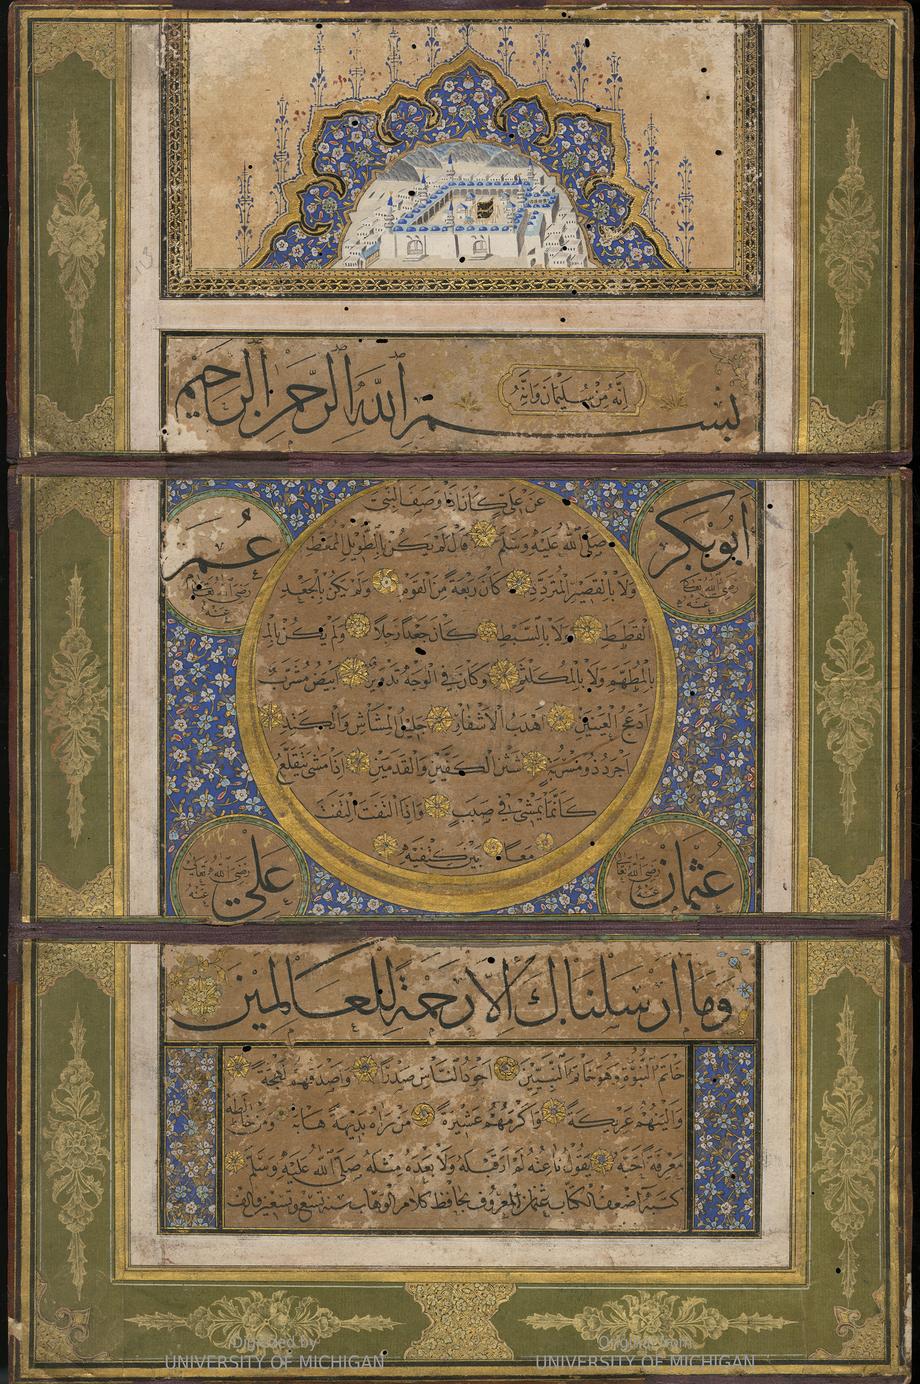 بسم الله الرحمن الرحيم
إنه من سليمان وإنه
أبو بكر
رضي الله تعالى عنه
عمر
رضي الله تعالى عنه
عن علي كان إذا وصف النبي
صلى الله عليه وسلم قال لم يكن بالطويل الممغط
ولا بالقصير المتردد كان ربعة من القوم ولم يكن بالجعد
القطط ولا بالسبط كان جعدا رجلا ولم يكن بالم
بالمطهم ولا بالمكلثم وكان في الوجه تدوير أبيض مشرب
أدعج العينين أهدب الأشفار جليل المشاش والكتد
أجرد ذو مسربة شثن الكفين والقدمين إذا مشى يتقلع
كأنما يمشي في صبب وإذا التفت التفت
معا بين كتفيه
عثمان
رضي الله تعالى عنه
علي
رضي الله تعالى عنه
وما أرسلناك إلا رحمة للعالمين
خاتم النبوة وهو خاتم النبيين أجود الناس صدرا وأصدقهم لهجة
وألينهم عريكة وأكرمهم عشيرة من رآه بديهة هابه ومن خالطه
معرفة أحبه يقول ناعته لم أر قبله ولا بعده مثله صلى الله عليه وسلم
كتبه أضعف الكتاب عثمان المعروف بحافظ كلام الوهاب سنة تسع وتسعين وألف
Digitized by
UNIVERSITY OF MICHIGAN
Original from
UNIVERSITY OF MICHIGAN